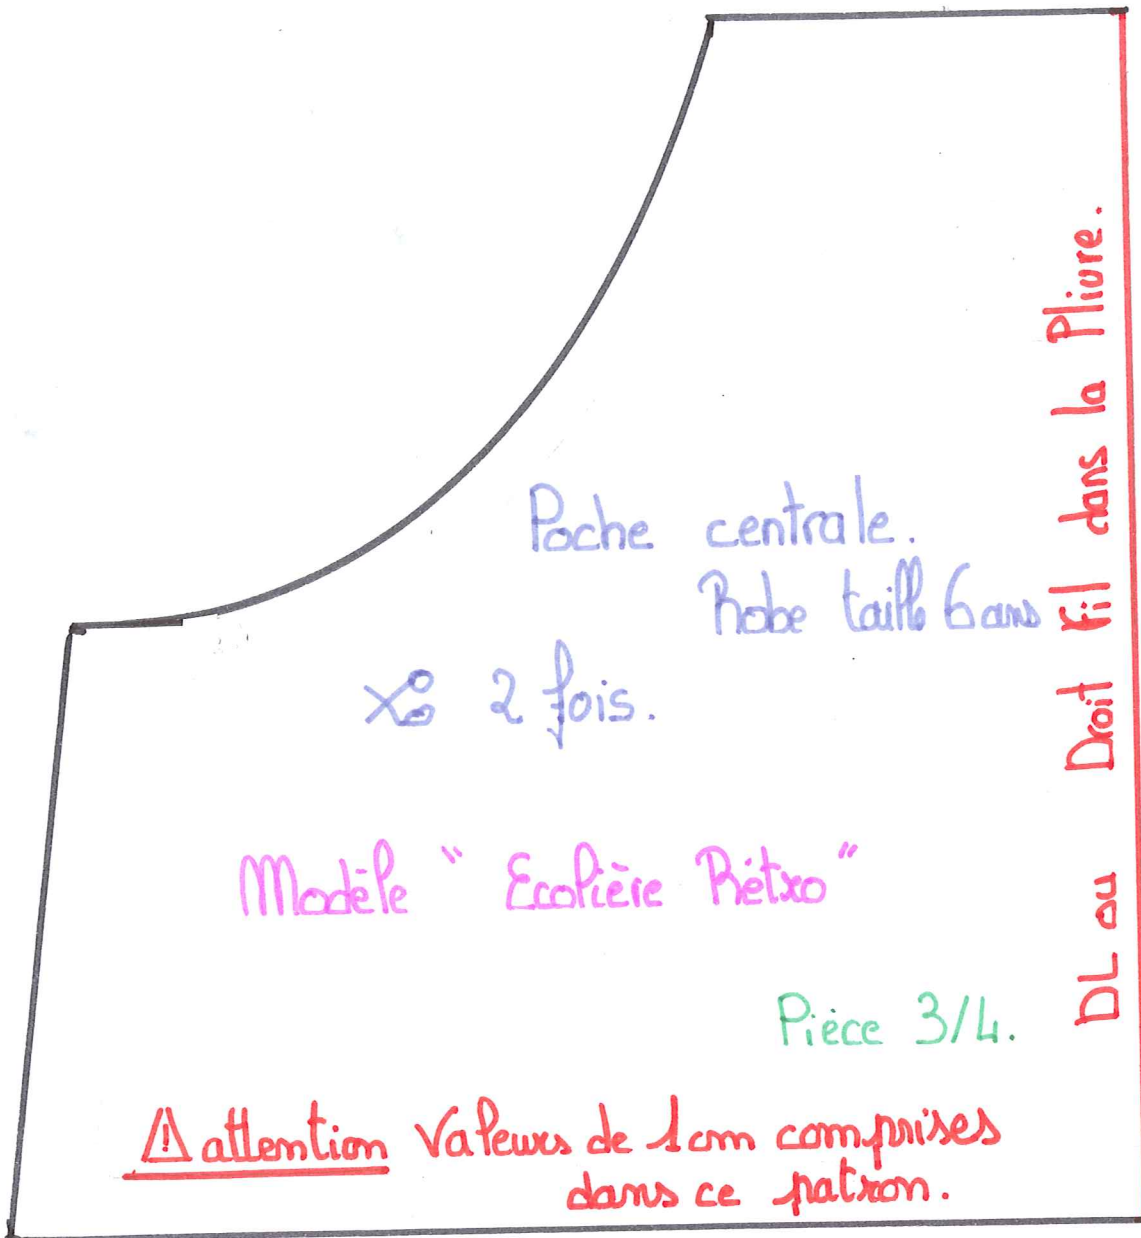 Poche centrale.
Robe taille 6 ans
2 fois.
Modèle " Ecolière Rétro "
Pièce 3/4.
⚠ attention Valeurs de 1cm comprises
dans ce patron.
DL ou Droit Fil dans la Pliure.